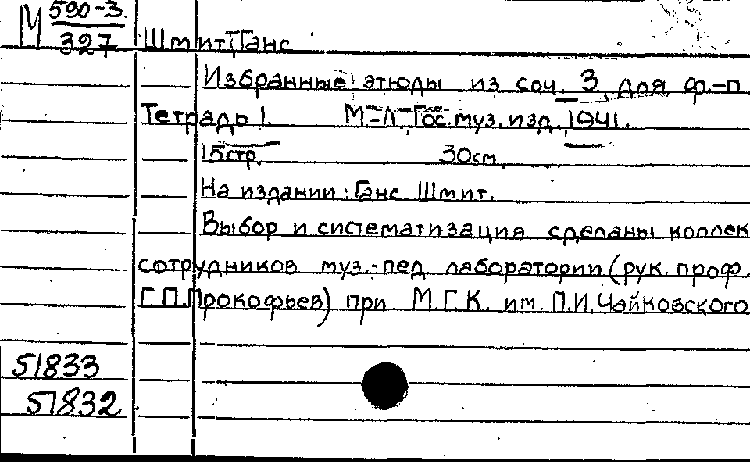 М 590-3
327 Шмит, Ганс
Избранные этюды из соч. 3 для ф.-п
Тетрадь 1. М.-Л., Гос. муз. изд, 1941.
15стр. 30см.
На издании: Ганс Шмит.
Выбор и систематизация сделаны коллек
сотрудников муз.-пед. лаборатории (рук. проф.
Г.П.Прокофьев) при М.Г.К. им. П.И.Чайковского
51833
51832